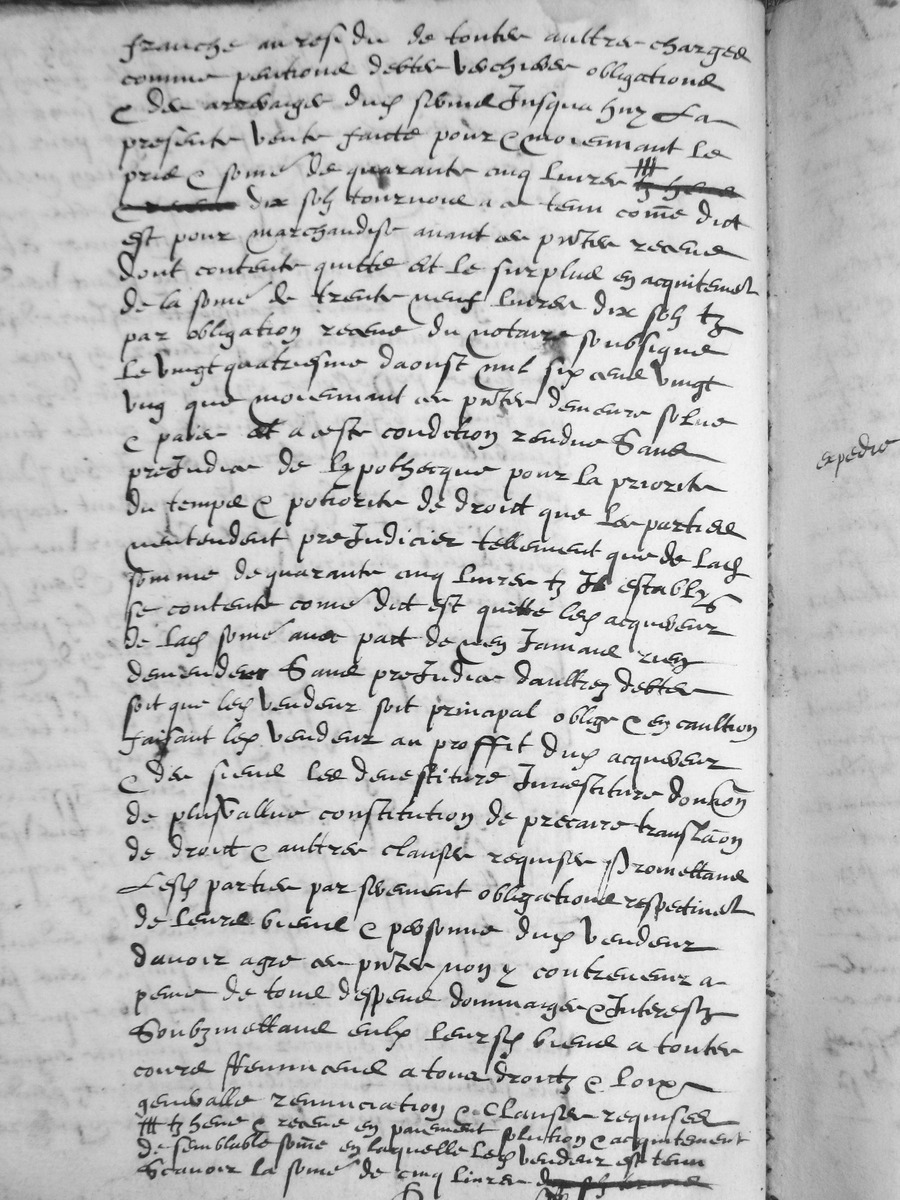 franche au residu de toutes aultres charges
comme pentions debtes vechieres obligations
& des arreraiges dud(it) servis Jusqua huy La
presente vente faicte pour & moiennant le
pris & somé de quarante cinq livres
dix solz tournois a ce tenu come dict
est pour marchandise avant ces pntes receue
dont contente quitte et le surplus en acquitemet
de la somé de trente neuf livres dix solz tz
par obligation receue du notaire soubsigne
le vingtquatriesme daoust mil six cens vingt
ung que moiennant ces pntes demeure solue
& paiee et a ceste condition rendue Sans
preJudice de lypothecque pour la priorite
du temps & potiorite de droict que les parties
nentendent preJudicier tellement que de lad
somme de quarante cinq livres tz Il establys
se contente comé dict est quitte led acquereur
de lad somé avec pact de nen Jamais rien
demender Sans preJudice daultrez debtes
soit que led vendeur soit principal oblige & en caultion
faisant led vendeur au proffit dud acquereur
& des siens les devestiture Investiture donaon
de plusvallue constitution de precaire translaon
de droict & aultres clauses requises Promettans
Lesd parties par serement obligations respectivet
de leurs biens & personne dud vendeur
davoir agre ces pntes non y contrevenir a
peine de tous despens dommaiges & Interestz
Soubzmettans eulx leursd biens a toutes
cours Renuncens a tous droictz & loix
generalle renunciation & Clauses requises
tz heue & receue en paiement solution & acquitement
de semblable some en laquelle led vendeur est tenu
Scavoir la somé de cinq livres
expedie